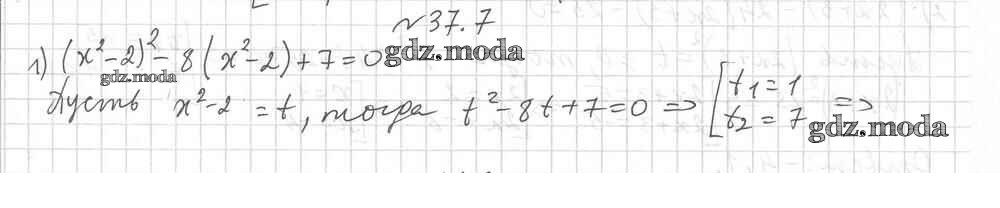 № 37.7
1) (x²-2)² - 8(x²-2)+7=0 gdz.moda
gdz.moda
Пусть x²-2 = t, тогда t²-8t+7=0 => [t₁=1 =>
t₂=7 gdz.moda